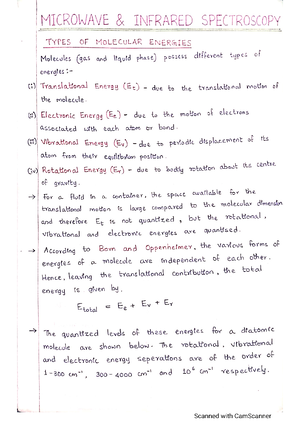 MICROWAVE & INFRARED SPECTROSCOPY
TYPES OF MOLECULAR ENERGIES
Molecules (gas and liquid phase) possess different types of
energies:-
(i) Translational Energy (Et) - due to the translational motion of
the molecule.
(ii) Electronic Energy (Ee) - due to the motion of electrons
associated with each atom or bond.
(iii) Vibrational Energy (Ev) - due to periodic displacement of its
atom from their equilibrium position.
(iv) Rotational Energy (Er) - due to bodily rotation about its centre
of gravity.
→ For a fluid in a container, the space available for the
translational motion is large compared to the molecular dimension
and therefore Et is not quantized, but the rotational,
vibrational and electronic energies are quantised.
→ According to Born and Oppenheimer, the various forms of
energies of a molecule are independent of each other.
Hence, leaving the translational contribution, the total
energy is given by,
Etotal = Ee + Ev + Er
→ The quantized levels of these energies for a diatomic
molecule are shown below. The rotational, vibrational
and electronic energy seperations are of the order of
1-300 cm⁻¹, 300-4000 cm⁻¹ and 10⁶ cm⁻¹ respectively.
Scanned with CamScanner